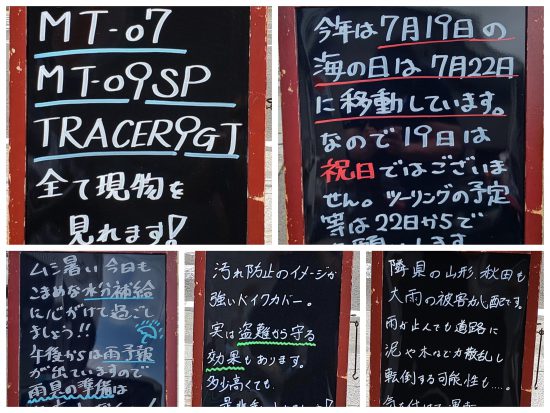 MT-07
MT-09SP
TRACER9GT
全て現物を
見れます!
今年は7月19日の
海の日は7月22日
に移動しています。
なので19日は
祝日ではございま
せん。ツーリングの予定
等は22日からで
ムシ暑い今日も
こまめな水分補給
に心がけて過ごし
ましょう!!
午後からは雨予報
が出ていますので
雨具の準備は
汚れ防止のイメージが
強いバイクカバー。
実は盗難から守る
効果もあります。
多少高くても
隣県の山形、秋田も
大雨の被害が心配です。
雨が止んでも道路に
泥や木などが散乱し
転倒する可能性も…。